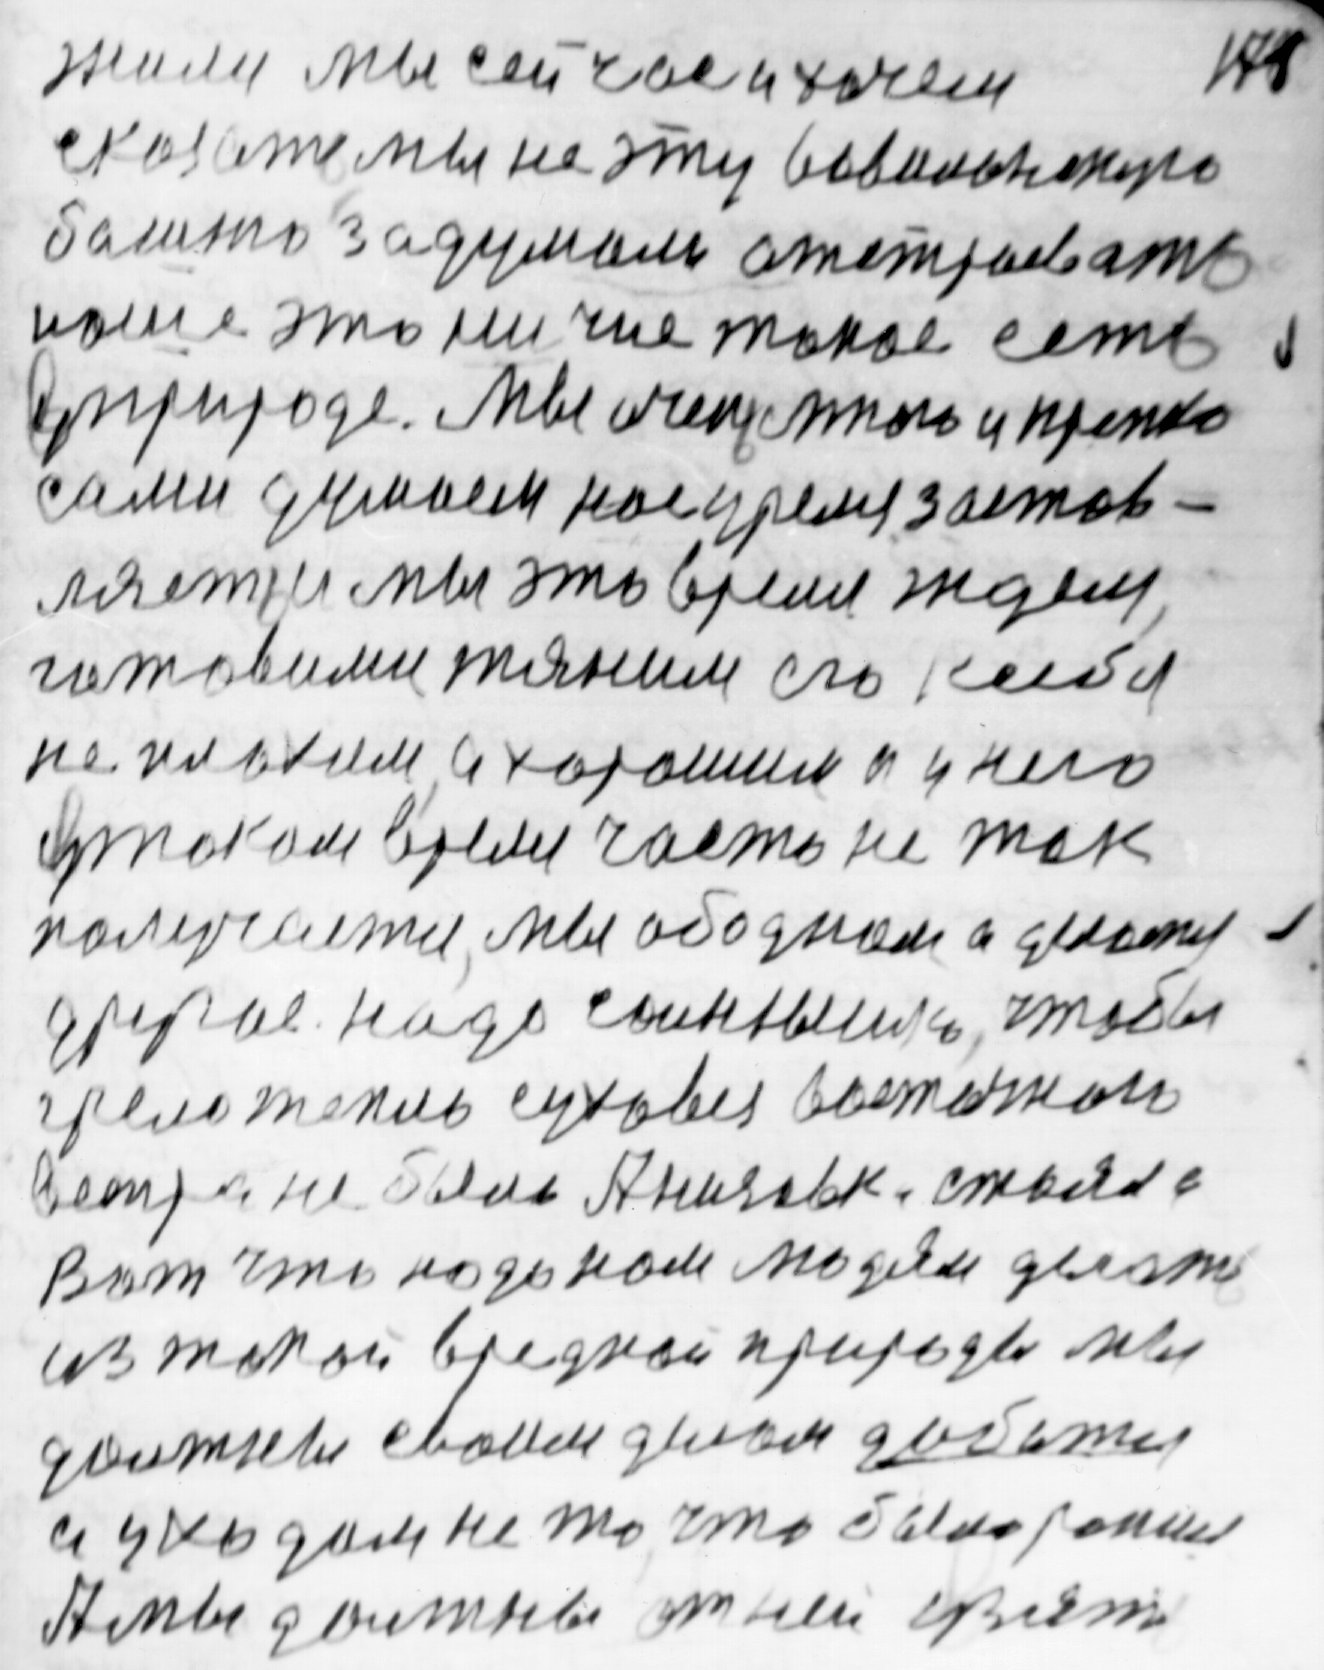 жили мы сейчас и хочем 178
сказать мы не эту вавилонскую
башню задумали отстраевать
наше это ни чие такое есть
в природе. Мы очень много и крепко
сами думаем нас время застав-
ляет и мы это время ждем,
готовими тянним его к себя
не плохим, а хорошим а у него
в таком время часто не так
получается, мы об одном а делаем
другое. надо солнышко, чтобы
грело тепло суховея восточного
ветра не было А низовк. стояла
Вот что надо нам людям делать
из такой вредной природы мы
должны своим делом добится
и уходом не то что было раньше
А мы должны от ней взять